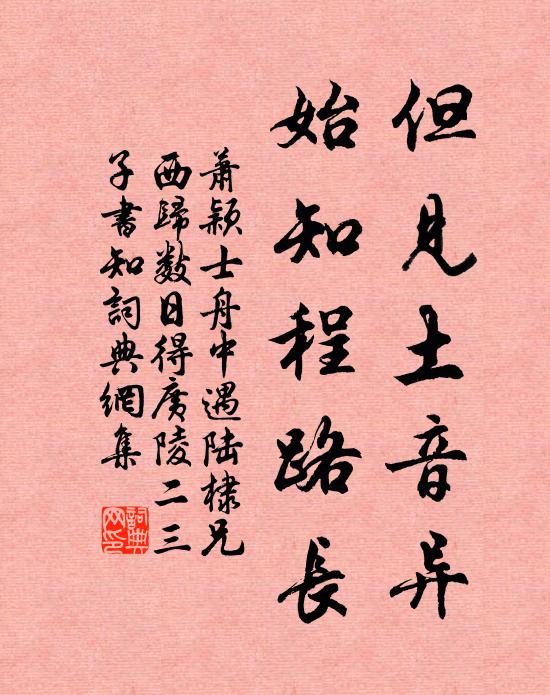 但见土音异
始知程路長
萧颖士舟中遇陆棣兄
西歸数日得廣陵二三
子書知詞典網集
詞典網印